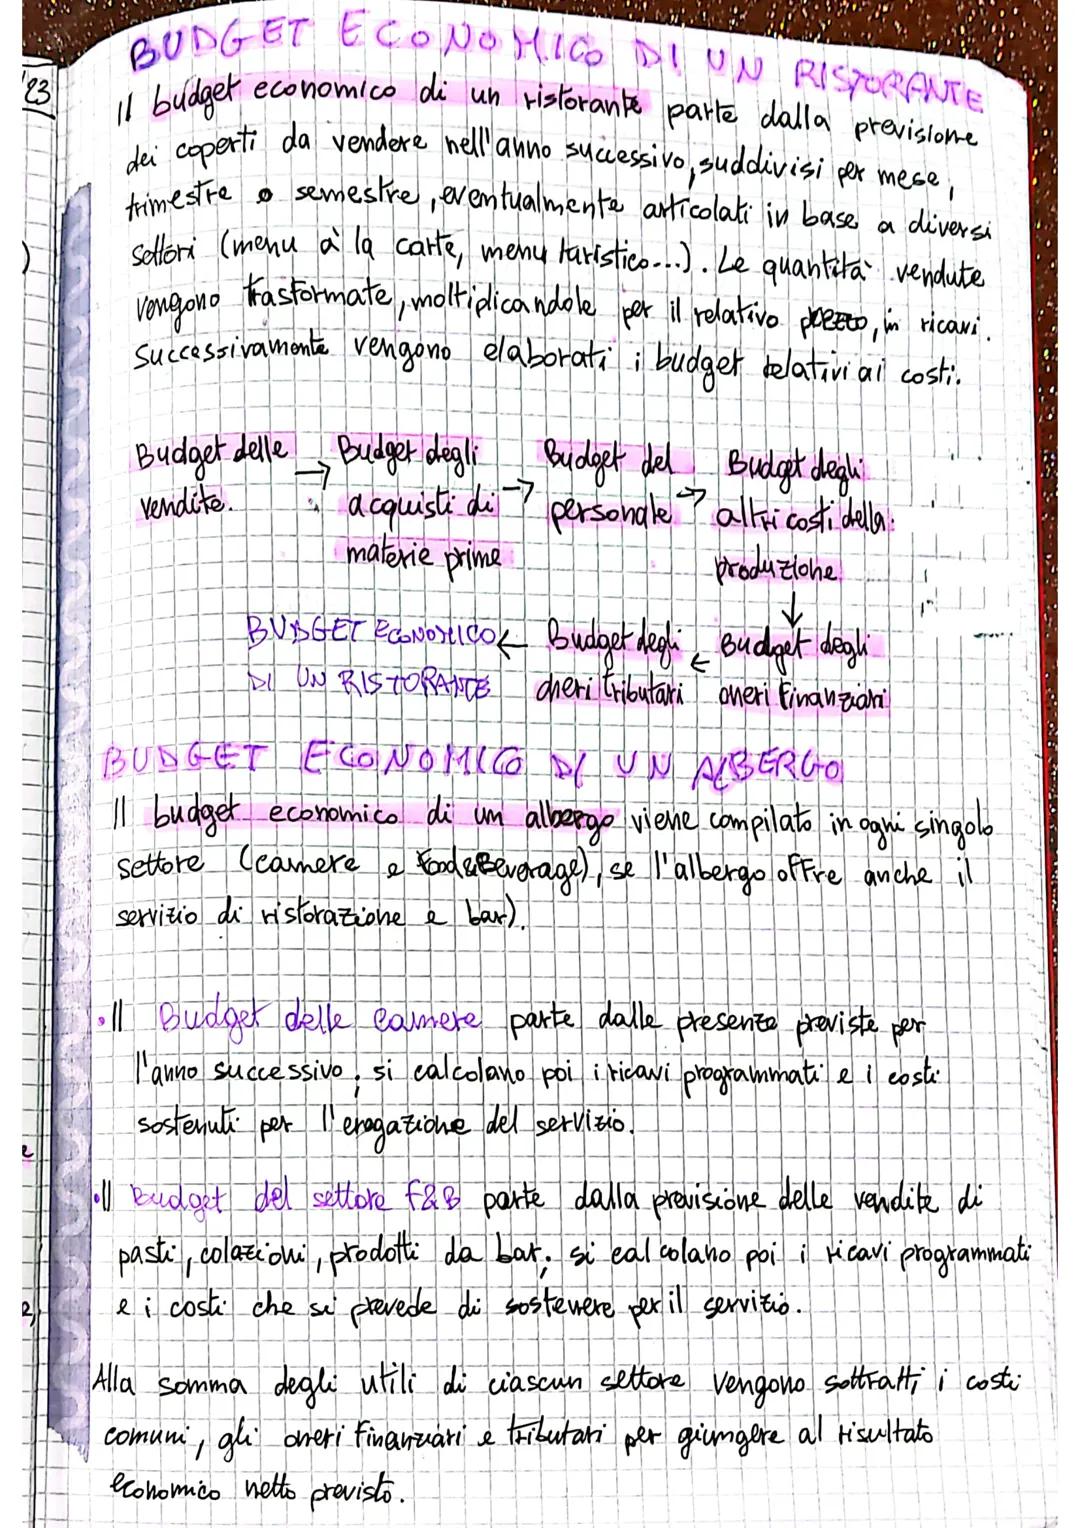 BUDGET ECONOMICO DI UN RISTORANTE
23
Il budget economico di un ristorante parte dalla previsione
dei coperti da vendere nell'anno successivo, suddivisi per mese,
trimestre o semestre, eventualmente articolati in base a diversi
settori (menu à la carte, menu turistico...). Le quantità vendute
vengono trasformate, moltiplicandole per il relativo prezzo, in ricavi.
Successivamente vengono elaborati i budget relativi ai costi.
Budget delle → Budget degli → Budget del → Budget degli
vendite. acquisti di personale altri costi della
materie prime produzione
↓
BUDGET ECONOMICO ← Budget degli ← Budget degli
DI UN RISTORANTE oneri tributari oneri finanziari
BUDGET ECONOMICO DI UN ALBERGO
Il budget economico di un albergo viene compilato in ogni singolo
settore (camere e Food&Beverage), se l'albergo offre anche il
servizio di ristorazione e bar).
• Il Budget delle camere parte dalle presenze previste per
l'anno successivo; si calcolano poi i ricavi programmati e i costi
sostenuti per l'erogazione del servizio.
• Il Budget del settore F&B parte dalla previsione delle vendite di
pasti, colazioni, prodotti da bar; si calcolano poi i ricavi programmati
e i costi che si prevede di sostenere per il servizio.
Alla somma degli utili di ciascun settore vengono sottratti i costi
comuni, gli oneri finanziari e tributari per giungere al risultato
economico netto previsto.